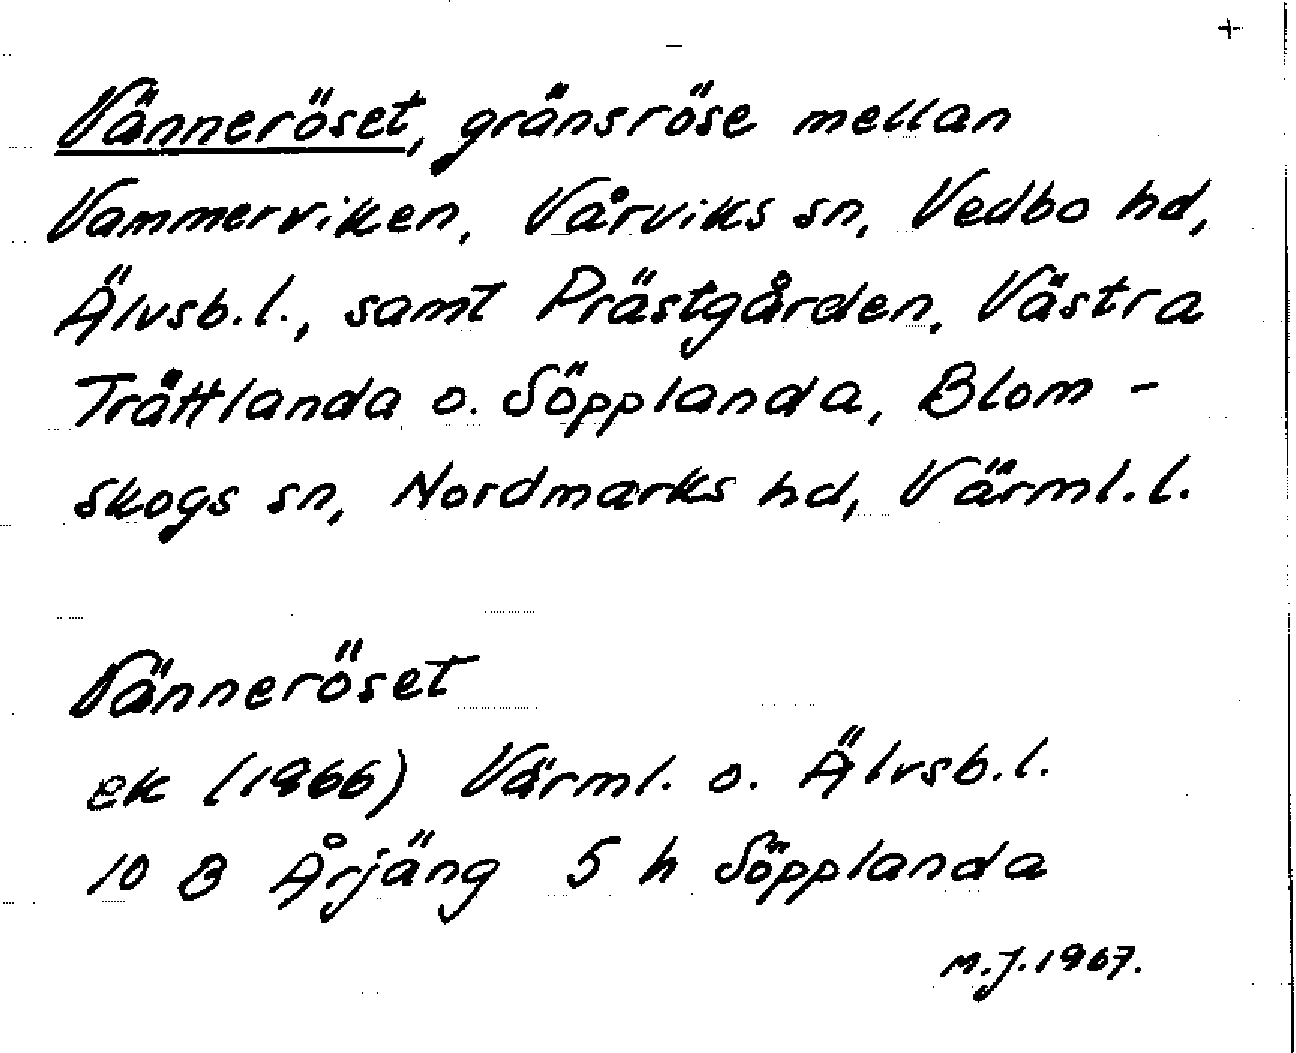 +
Vänneröset, gränsröse mellan
Vammerviken, Vårviks sn, Vedbo hd,
Älvsb.l., samt Prästgården, Västra
Trättlanda o. Söpplanda, Blom-
skogs sn, Nordmarks hd, Värml.l.
Vänneröset
ek (1966) Värml. o. Älvsb.l.
10 B Årjäng 5 h Söpplanda
M.J. 1967.